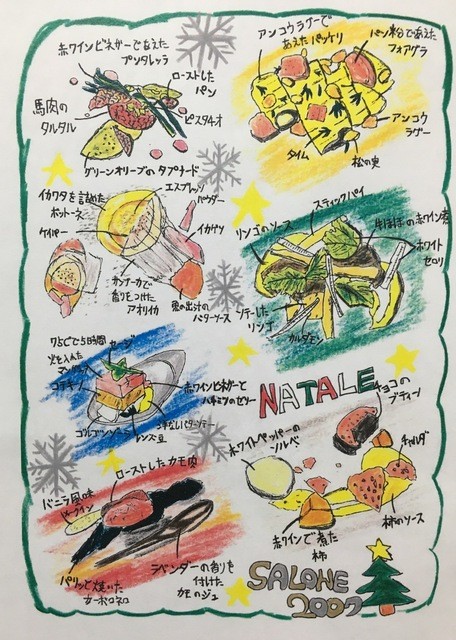 赤ワインビネガーであえた
プンタレッラ
ローストした
パン
馬肉の
タルタル
ピスタチオ
グリーンオリーブのタプナード
アンコウラグーで
あえたパッケリ
パン粉であえた
フォアグラ
アンコウ
ラグー
タイム
松の実
イカワタを詰めた
エスプレッソ
パウダー
ケイパー
イカゲソ
香りをつけた
アオリイカ
バターソース
スティックパイ
リンゴのソース
牛ほほの赤ワイン煮
ホワイト
セロリ
ソテーした
リンゴ
カルダモン
75℃で5時間
火を入れた
セージ
コテキーノ
赤ワインビネガーと
ハチミツのゼリー
ゴルゴンゾーラ
レンズ豆
NATALE
チョコの
ブディーノ
ホワイトペッパーの
ソルベ
チャルダ
柿のソース
赤ワインで煮た
柿
ローストしたカモ肉
バニラ風味
パリッと焼いた
カーボロネロ
ラベンダーの香りを
付けた
カモのジュ
SALONE
2007